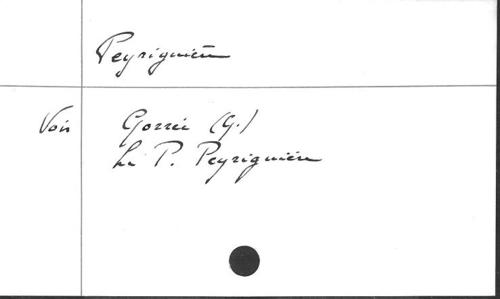 Peyriguière
Voir Gorrée (G.)
Le P. Peyriguière